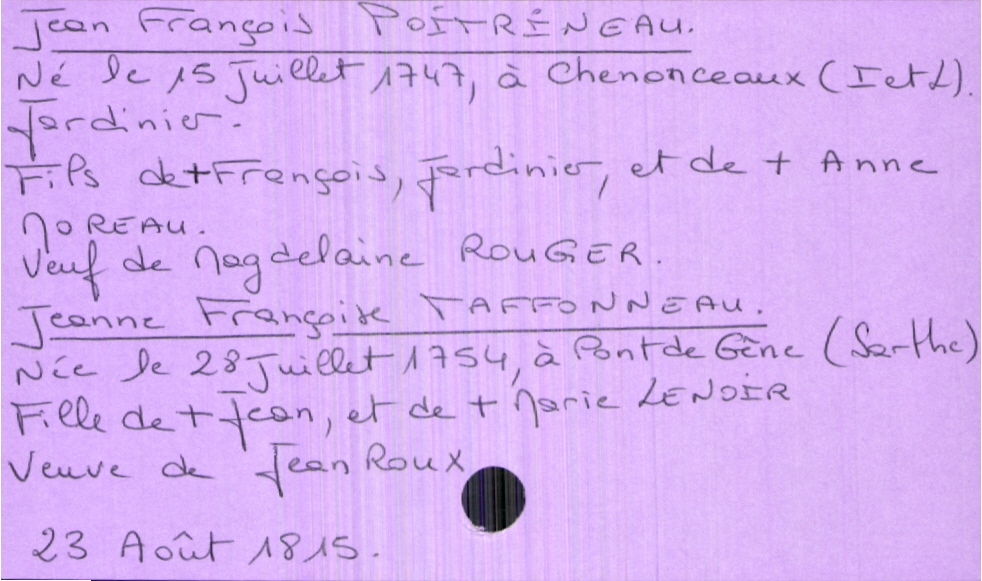 Jean François POITRINEAU.
Né le 15 Juillet 1747, à Chenonceaux (I et L).
Jardinier.
Fils de + François, Jardinier, et de + Anne
MOREAU.
Veuf de Magdelaine ROUGER.
Jeanne Françoise TAFFONNEAU.
Née le 28 Juillet 1754, à Pont de Gêne (Sarthe)
Fille de + Jean, et de + Marie LENOIR
Veuve de Jean Roux
23 Août 1815.